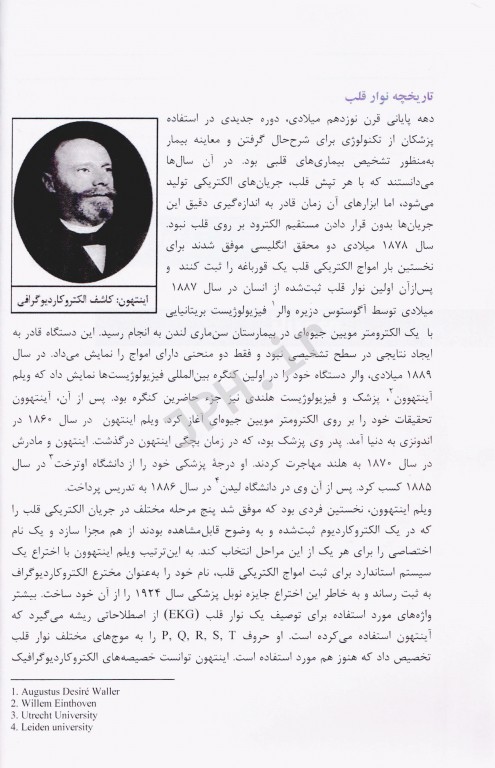 تاریخچه نوار قلب
دهه پایانی قرن نوزدهم میلادی، دوره جدیدی در استفاده
پزشکان از تکنولوژی برای شرح‌حال گرفتن و معاینه بیمار
به‌منظور تشخیص بیماری‌های قلبی بود. در آن سال‌ها
می‌دانستند که با هر تپش قلب، جریان‌های الکتریکی تولید
می‌شود، اما ابزارهای آن زمان قادر به اندازه‌گیری دقیق این
جریان‌ها بدون قرار دادن مستقیم الکترود بر روی قلب نبود.
سال ۱۸۷۸ میلادی دو محقق انگلیسی موفق شدند برای
نخستین بار امواج الکتریکی قلب یک قورباغه را ثبت کنند و
پس‌ازآن اولین نوار قلب ثبت‌شده از انسان در سال ۱۸۸۷
میلادی توسط آگوستوس دزیره والر۱ فیزیولوژیست بریتانیایی
اینتهون: کاشف الکتروکاردیوگرافی
با یک الکترومتر مویین جیوه‌ای در بیمارستان سن‌ماری لندن به انجام رسید. این دستگاه قادر به
ایجاد نتایجی در سطح تشخیصی نبود و فقط دو منحنی دارای امواج را نمایش می‌داد. در سال
۱۸۸۹ میلادی، والر دستگاه خود را در اولین کنگره بین‌المللی فیزیولوژیست‌ها نمایش داد که ویلم
آینتهوون۲، پزشک و فیزیولوژیست هلندی نیز جزء حاضرین کنگره بود. پس از آن، آینتهوون
تحقیقات خود را بر روی الکترومتر مویین جیوه‌ای آغاز کرد. ویلم اینتهون در سال ۱۸۶۰ در
اندونزی به دنیا آمد. پدر وی پزشک بود، که در زمان بچگی اینتهون درگذشت. اینتهون و مادرش
در سال ۱۸۷۰ به هلند مهاجرت کردند. او درجهٔ پزشکی خود را از دانشگاه اوترخت۳ در سال
۱۸۸۵ کسب کرد. پس از آن وی در دانشگاه لیدن۴ در سال ۱۸۸۶ به تدریس پرداخت.
ویلم اینتهوون، نخستین فردی بود که موفق شد پنج مرحله مختلف در جریان الکتریکی قلب را
که در یک الکتروکاردیوم ثبت‌شده و به وضوح قابل‌مشاهده بودند از هم مجزا سازد و یک نام
اختصاصی را برای هر یک از این مراحل انتخاب کند. به این‌ترتیب ویلم اینتهوون با اختراع یک
سیستم استاندارد برای ثبت امواج الکتریکی قلب، نام خود را به‌عنوان مخترع الکتروکاردیوگراف
به ثبت رساند و به خاطر این اختراع جایزه نوبل پزشکی سال ۱۹۲۴ را از آن خود ساخت. بیشتر
واژه‌های مورد استفاده برای توصیف یک نوار قلب (EKG) از اصطلاحاتی ریشه می‌گیرد که
آینتهون استفاده می‌کرده است. او حروف P, Q, R, S, T را به موج‌های مختلف نوار قلب
تخصیص داد که هنوز هم مورد استفاده است. اینتهون توانست خصیصه‌های الکتروکاردیوگرافیک
1. Augustus Desiré Waller
2. Willem Einthoven
3. Utrecht University
4. Leiden university